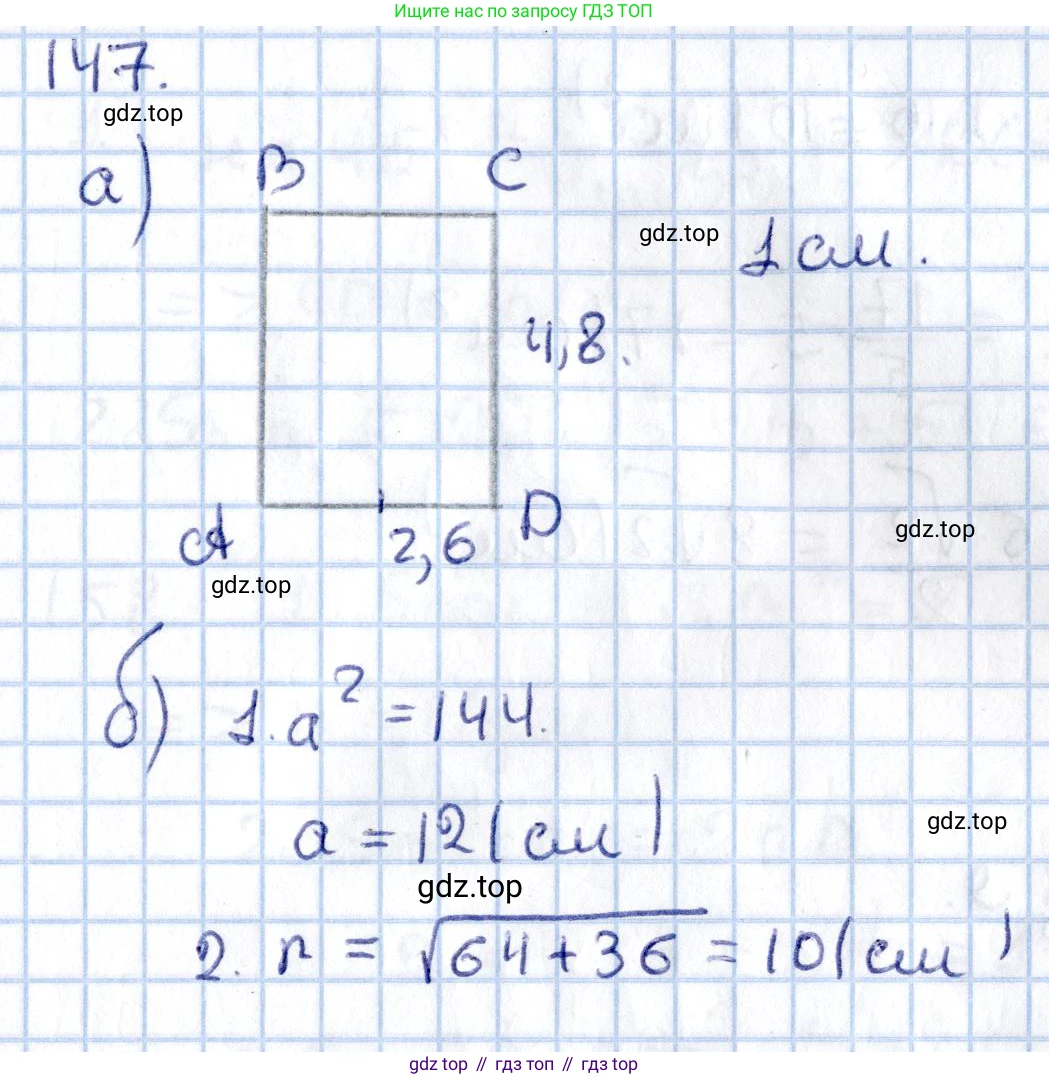 Ищите нас по запросу ГДЗ ТОП
147.
gdz.top
а) B C
gdz.top 1 см.
4,8.
A 2,6 D
gdz.top
gdz.top
б) 1. a² = 144.
a = 12 (см)
gdz.top
gdz.top
2. r = √64 + 36 = 10 (см)
gdz top // гдз топ // gdz.top